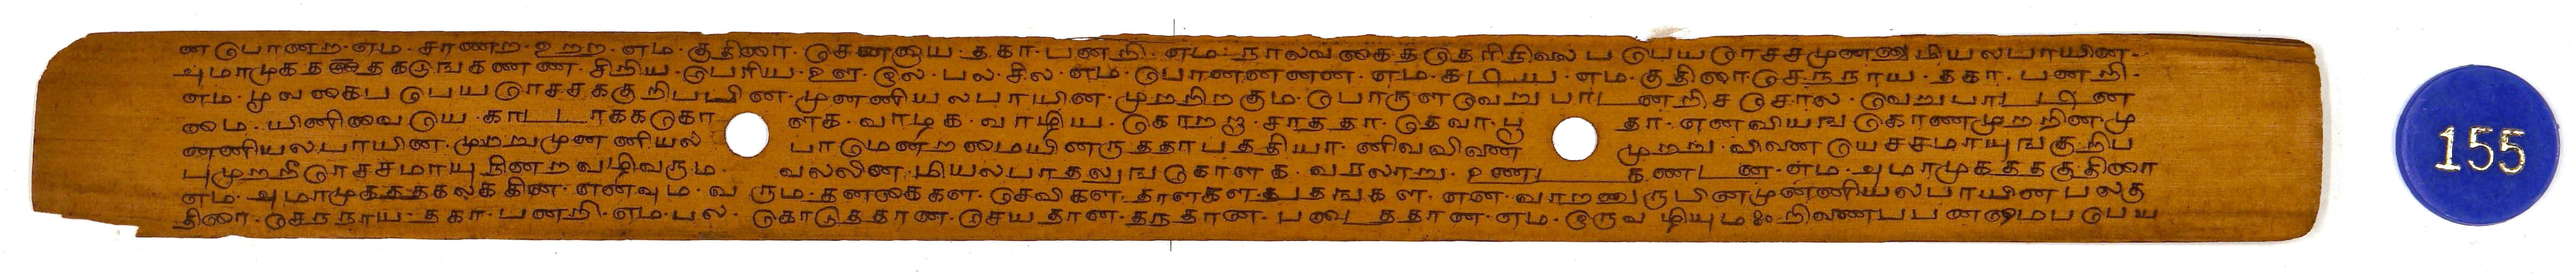 ன பொனற. எம. சாணற. உறற. எம. குதிரை. செநநாய. தகா. பணறி. எம. நாலவகைத தெரிநிலை ப பெய ரெசசமுணணு மியலபாயின.
அமாமுகத த கடுங கண ண. சிறிய. பெரிய. உள. இல. பல. சில. எம. பொனனன. எம. கடிய. எம. குதிரை செநநாய. தகா. பணறி.
எம. மூவகைப பெயரெசசககுறிபபின. முனணியலபாயின. முறறிறகும. பொருள வேறு பாடனறிச சொல. வேறுபாடடின
மை. யினிவை யெ. காடடாககொகா ளக. வாழக. வாழிய. கொறறா. சாததா. தேவா. பூ தா. எனவியங கொணமுறறின. மு
னணியலபாயின. முறறுமுண ணியல பாமெனறமையினருததாபததியா. னிவவிணை முறறு. வினை யெசசமாயுங குறிப
புமுறறீரெசசமாயு நினற வழிவரும. வலலின மியலபாதலுங கொளக. வரலாறு. உணடகணடன. எம. அமாமுகதத குதிரை
எம. அமாமுகததகலககின. எனவும. வரும. தனகைகள. செவிகள. தாளகள. பதஙகள. என. வாறணுருபினமுனணியலபாயின பலகு
திரை. செநநாய. தகா. பணறி. எம. பல. கொடுததான. செயதான. தநதான. படைததான. எம. இருவ ழியும நிலைணபபனமைப பெய
155